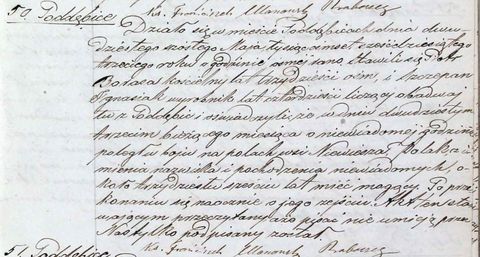 Ks. Franciszek Ulanowski Proboszcz
50 Poddębice
Działo się w mieście Poddębicach dnia dwu
dziestego szóstego Maja tysiąc ośmset sześćdziesiątego
trzeciego roku o godzinie ósmej rano. Stawili się Piotr
kościelny lat trzydzieści ośm, i Szczepan
Ignasiak wyrobnik lat czterdzieści liczący obadwaj
tu z Poddębic i oświadczyli iż w dniu dwudziestym
trzecim bieżącego miesiąca o niewiadomej godzinie
poległ w boju na polach wsi Niewiesza, Polak z i
mienia nazwiska i pochodzenia niewiadomych, o
koło trzydziestu sześciu lat mieć mogący. Po prze
konaniu się naocznie o jego zejściu. Akt ten sta
wającym przeczytany a że pisać nie umieją przez
Nas tylko podpisany został.
Ks. Franciszek Ulanowski Proboszcz
51 Poddębice